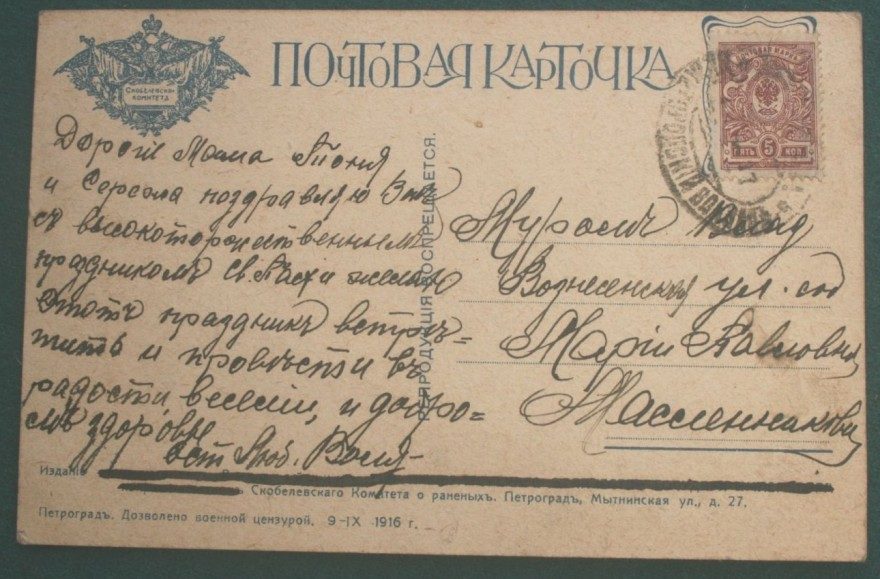 ПОЧТОВАЯ КАРТОЧКА
СКОБЕЛЕВСКІЙ
КОМИТЕТЪ
ПОЧТОВАЯ МАРКА
ПЯТЬ 5 КОП.
Дорогіе Мама Тоня
и Сережа поздравляю Васъ
съ высокоторжественнымъ
праздникомъ Св. Пасхи желаю
этотъ праздникъ встрѣ=
тить и провѣсти въ
радости, веселіи, и добро=
мъ здоровьи
ост Люб. Воля
РЕПРОДУКЦІЯ ВОСПРЕЩАЕТСЯ.
Муромъ
Вознесенская ул. соб
Маріи Павловны
Масленниковой
Изданіе
Скобелевскаго Комитета о раненыхъ. Петроградъ, Мытнинская ул., д. 27.
Петроградъ. Дозволено военной цензурой. 9-IX 1916 г.